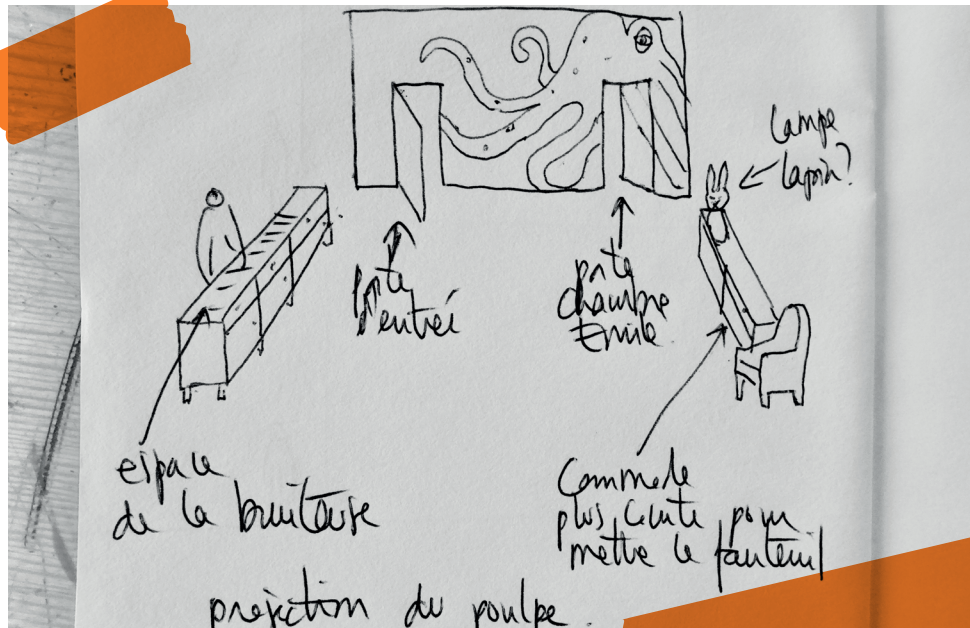 lampe
lapin?
porte
d'entrée
porte
chambre
Emile
espace
de la bruiteuse
Commode
plus courte pour
mettre le fauteuil
projection du poulpe